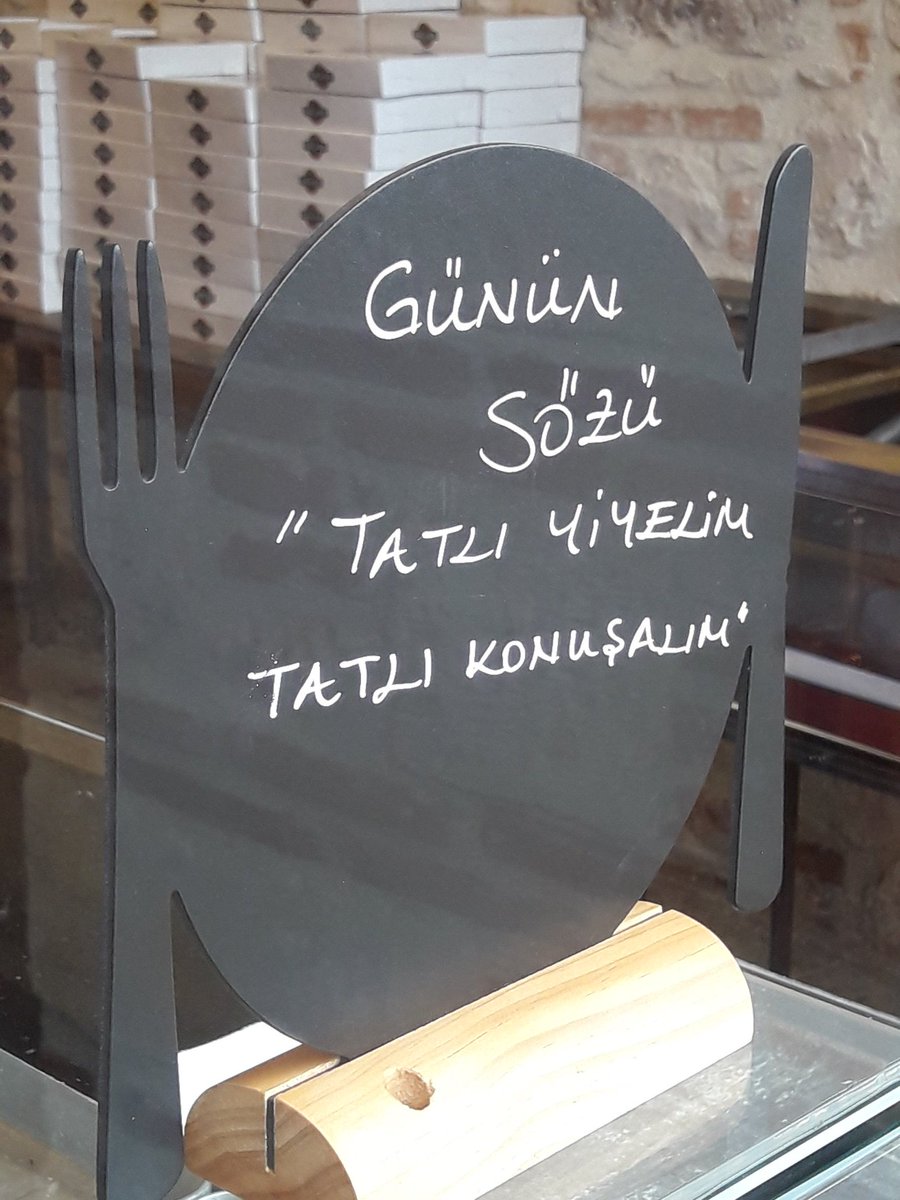 GÜNÜN
SÖZÜ
"TATLI YİYELİM
TATLI KONUŞALIM"